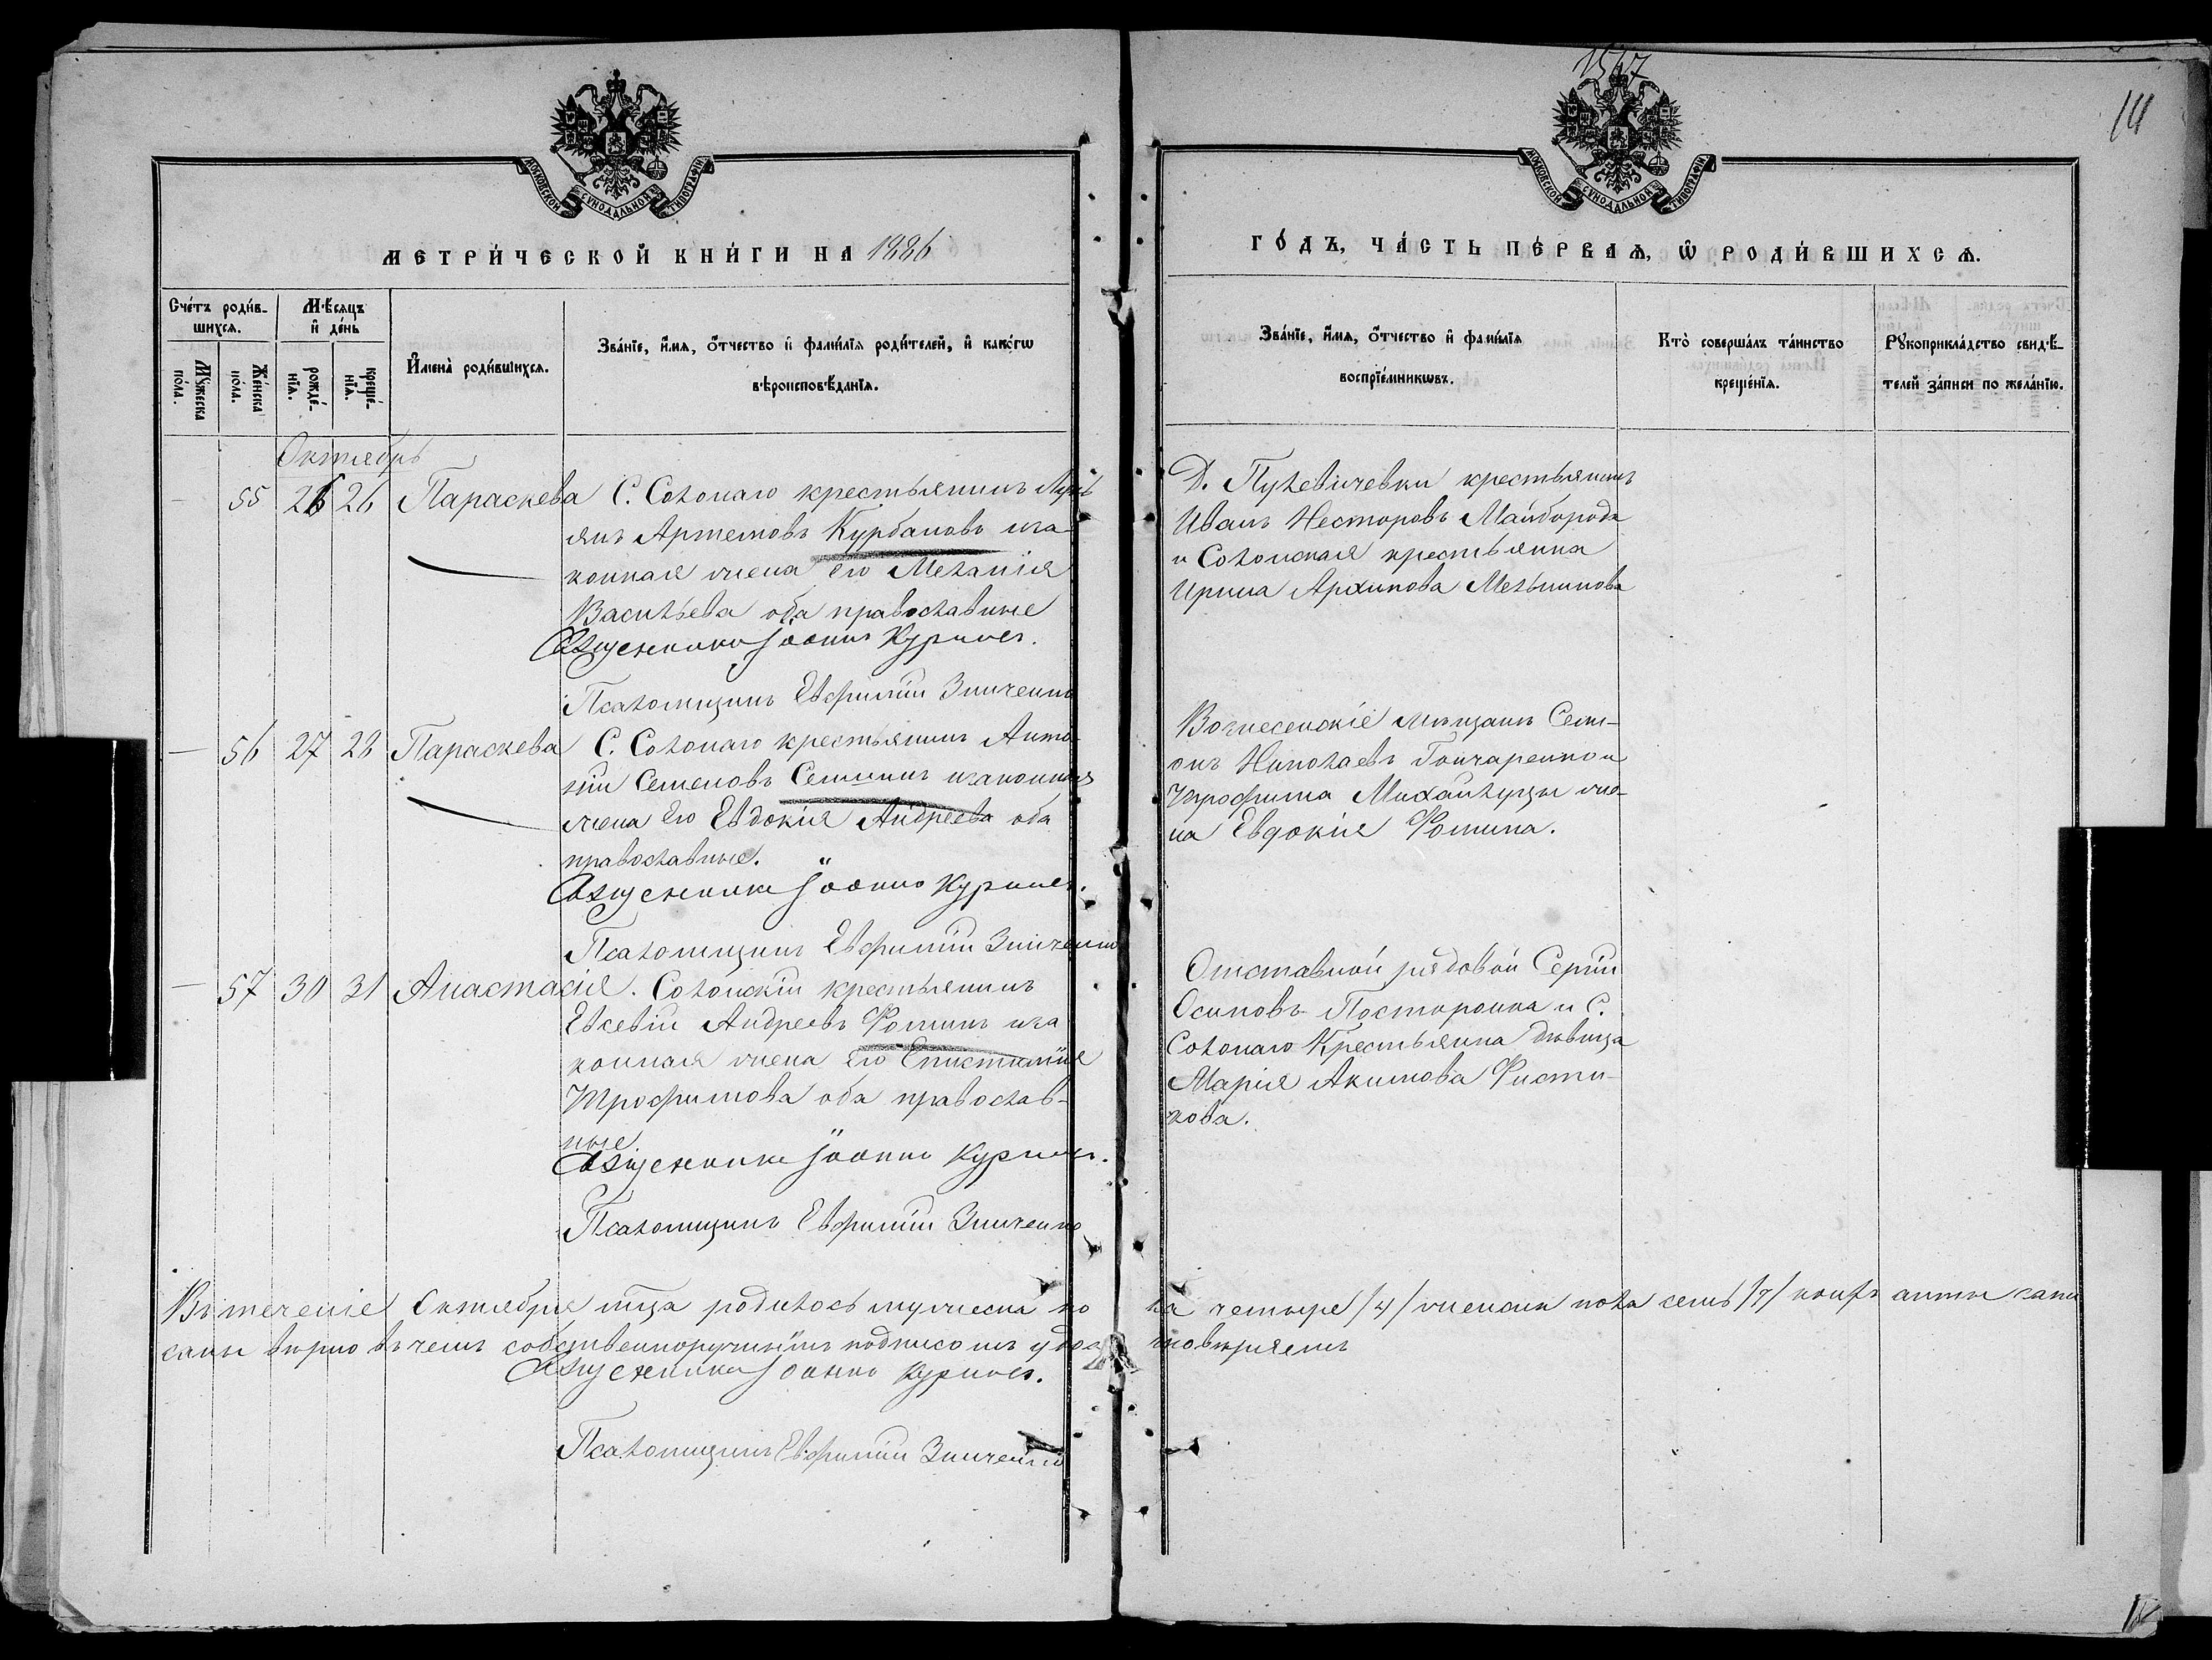 1567
141
МОСКОВСКОЙ СѴНОДАЛЬНОЙ ТИПОГРАФІИ
МОСКОВСКОЙ СѴНОДАЛЬНОЙ ТИПОГРАФІИ
МЕТРИ́ЧЕСКОЙ КНИ́ГИ НА 1886
ГО́ДЪ, ЧА́СТЬ ПЕ́РВАѦ, Ѡ҆ РОДИ́ВШИХСѦ.
Сче́тъ роди́в-
шихсѧ.
Мѣ́сѧцъ
и҆ де́нь
Мꙋ́жеска
по́ла.
Же́нска
по́ла.
рожде́-
нїѧ.
креще́-
нїѧ.
И҆мена̀ роди́вшихсѧ.
Зва́нїе, и҆́мѧ, ѻ҆́тчество и҆ фамѝлїѧ роди́телей, и҆ како́гѡ
вѣроисповѣ́данїѧ.
Зва́нїе, и҆́мѧ, ѻ҆́тчество и҆ фамѝлїѧ
воспрїе́мникѡвъ.
Кто̀ соверша́лъ та́инство
креще́нїѧ.
Рꙋкоприкла́дство свидѣ́-
телей за́писи по жела́нїю.
Октябрь
— 55 26 26 Параскева С. Солонаго крестьянинъ Лукі
янъ Артемовъ Курбановъ иза
конная жена его Меланія
Васильева оба православные
Священникъ Іоаннъ Курилов.
Псаломщикъ Евфимій Зинченко
Д. Пулевичевки крестьянинъ
Иванъ Несторовъ Майборода
и Солонская крестьянка
Ирина Архипова Мельникова
— 56 27 28 Параскева С. Солонаго крестьянинъ Анто
ній Семеновъ Семинин изаконная
жена его Евдокія Андреева оба
православные.
Священникъ Іоаннъ Курилов.
Псаломщикъ Евфимій Зинченко
Вознесенскіе мѣщанъ Семі-
онъ Николаевъ Гончаренко и
Трофима Михайлуцы же-
на Евдокія Фомина.
— 57 30 31 Анастасія. Солонскій крестьянинъ
Евсевій Андреевъ Фоминъ иза
конная жена его Епистимія
Трофимова оба православ-
ные
Священникъ Іоаннъ Курилов.
Псаломщикъ Евфимій Зинченко
Отставной рядовой Сергій
Осиповъ Посторонка и С.
Солонаго Крестьянка дѣвица
Марія Акимова Фисти-
кова.
Въ теченіе Октября мца родилось мужеска по ла четыре /4/ женска пола семь /7/ коихъ акты запи
саны вѣрно въ чемъ собственноручнымъ подписомъ удос товѣряемъ
Священникъ Іоаннъ Курилов.
Псаломщикъ Евфимій Зинченко